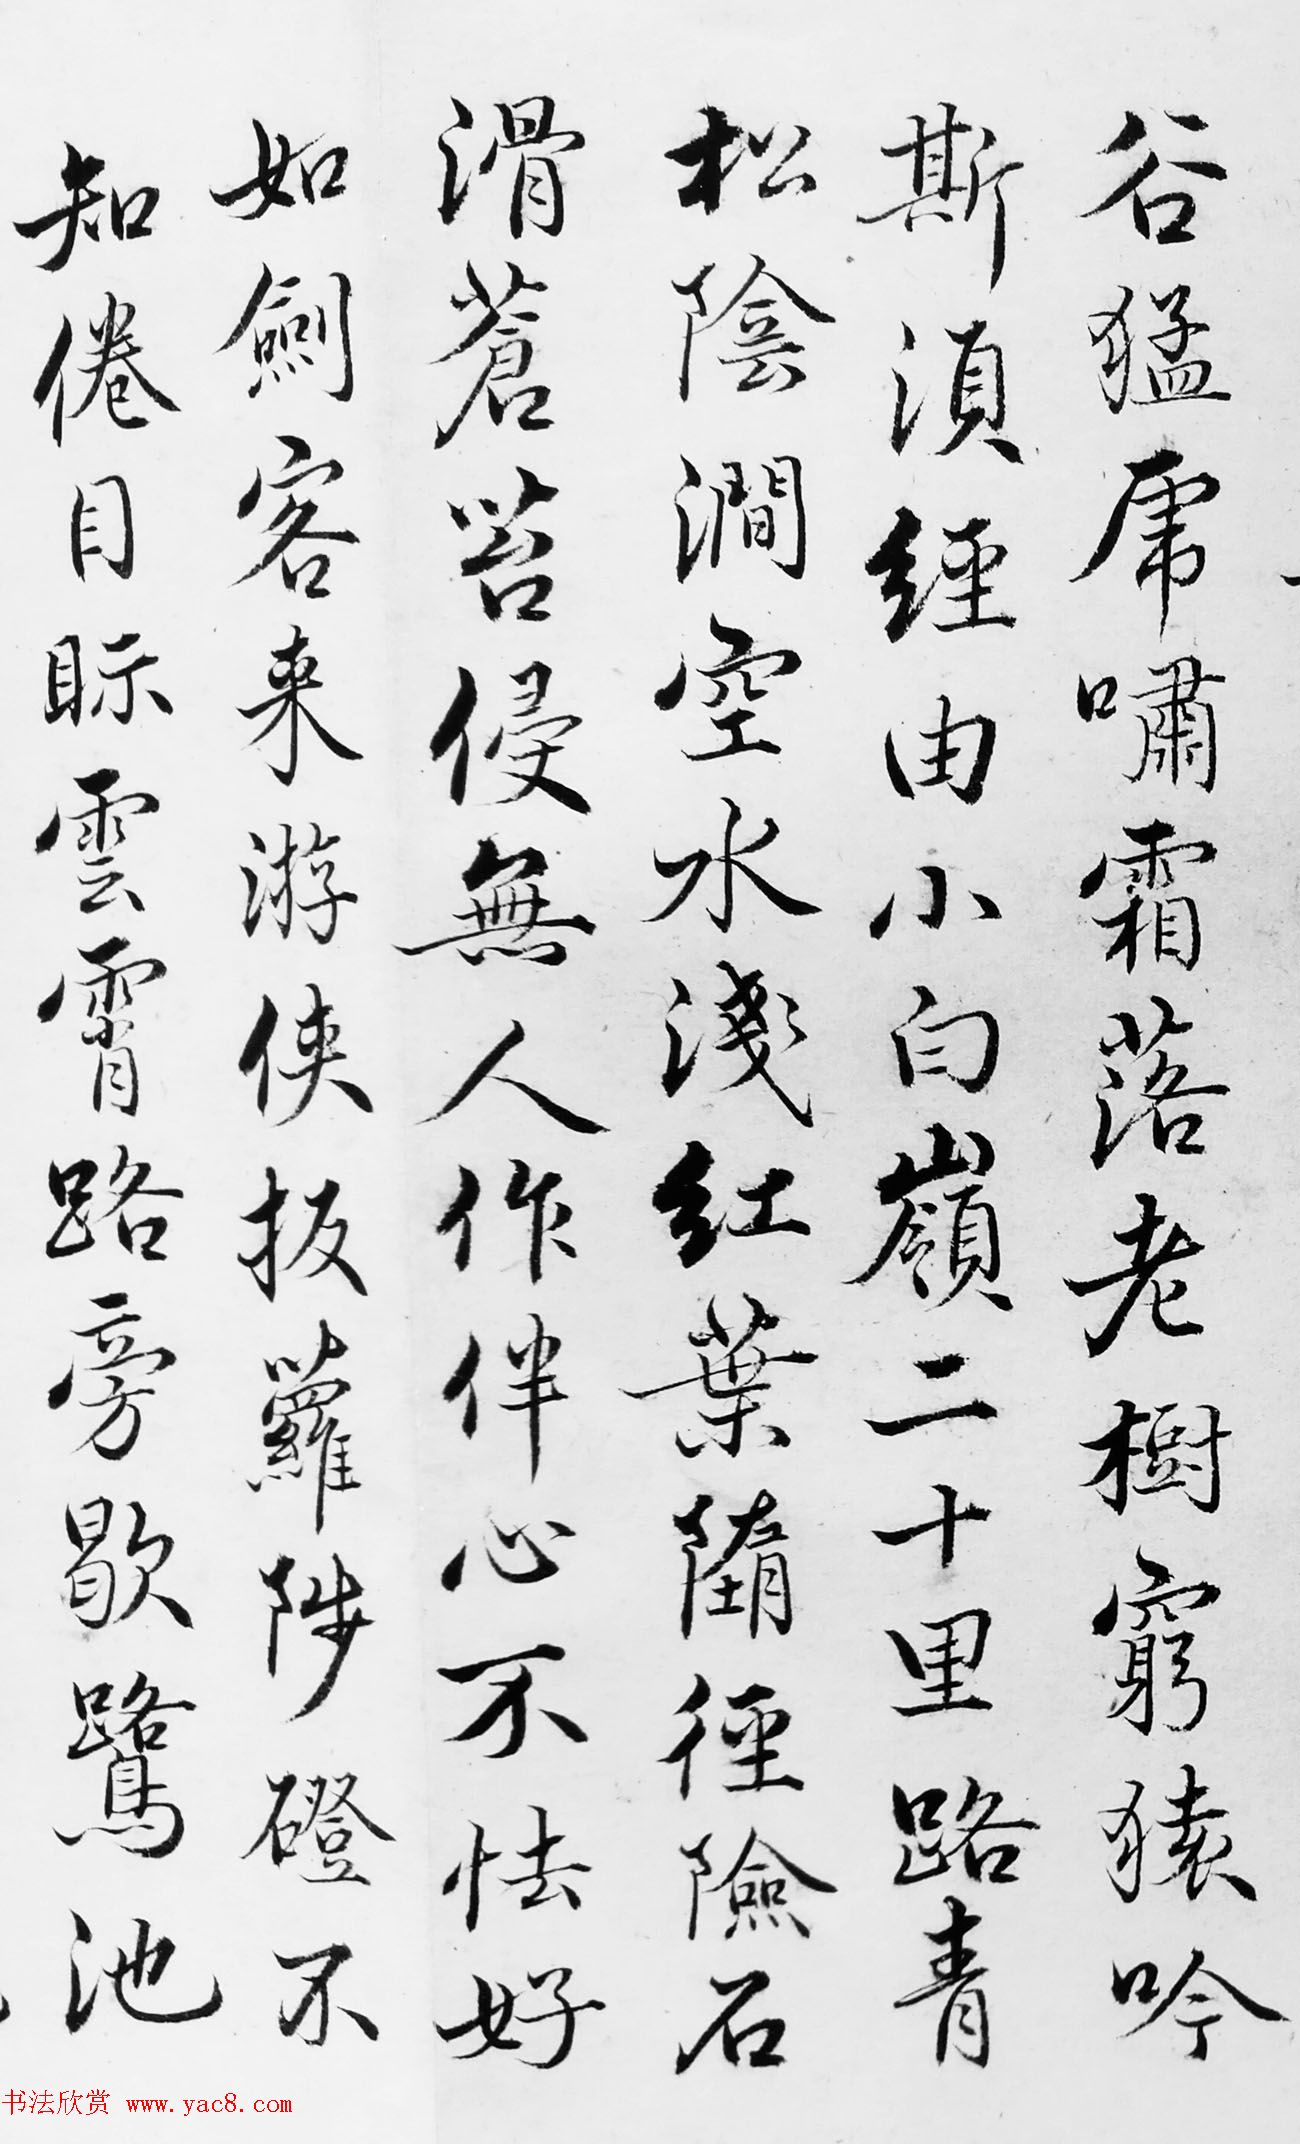 谷猛虎嘯霜落老樹窮猿吟
斯須經由小白嶺二十里路青
松陰澗空水淺紅葉墮徑險石
滑蒼苔侵無人作伴心不怯好
如劍客来游俠扳蘿陟磴不
知倦目眎雲霄路旁歇鷺池
书法欣赏 www.yac8.com